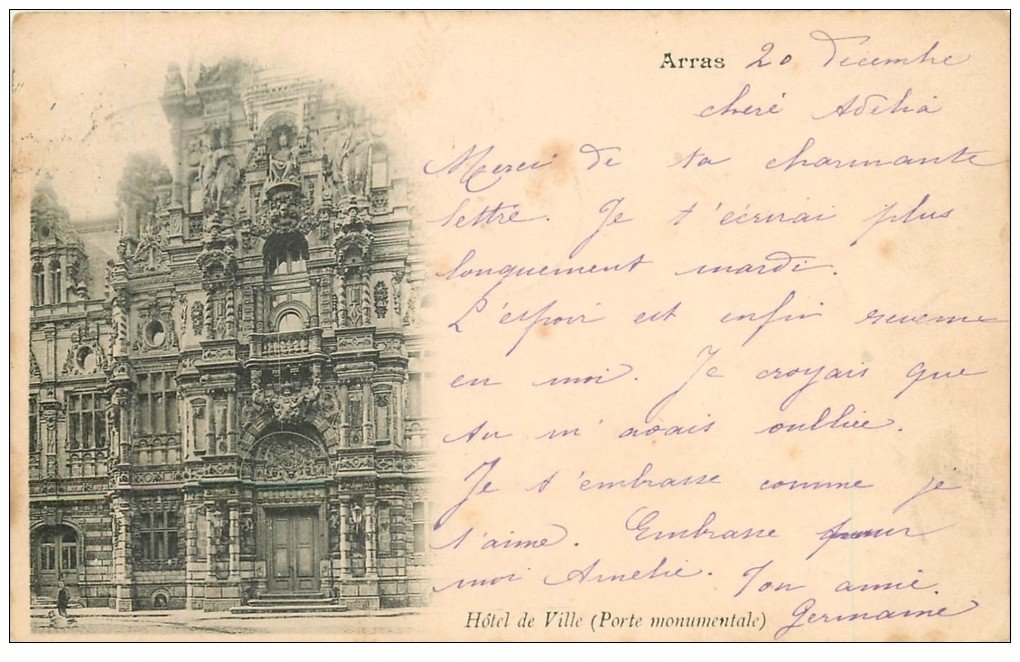 Arras 20 Décembre
chère Adélia
Merci de ta charmante
lettre. Je t'écrirai plus
longuement mardi.
L'espoir est enfin revenu
en moi. Je croyais que
tu m'avais oubliée.
Je t'embrasse comme je
t'aime. Embrasse pour
moi Amélie. Ton amie.
Germaine
Hôtel de Ville (Porte monumentale)